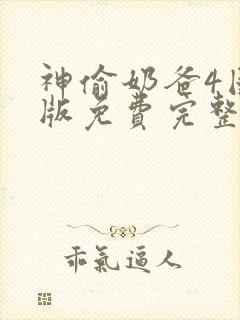 神偷奶爸4国
版免费完整
乖氣逼人